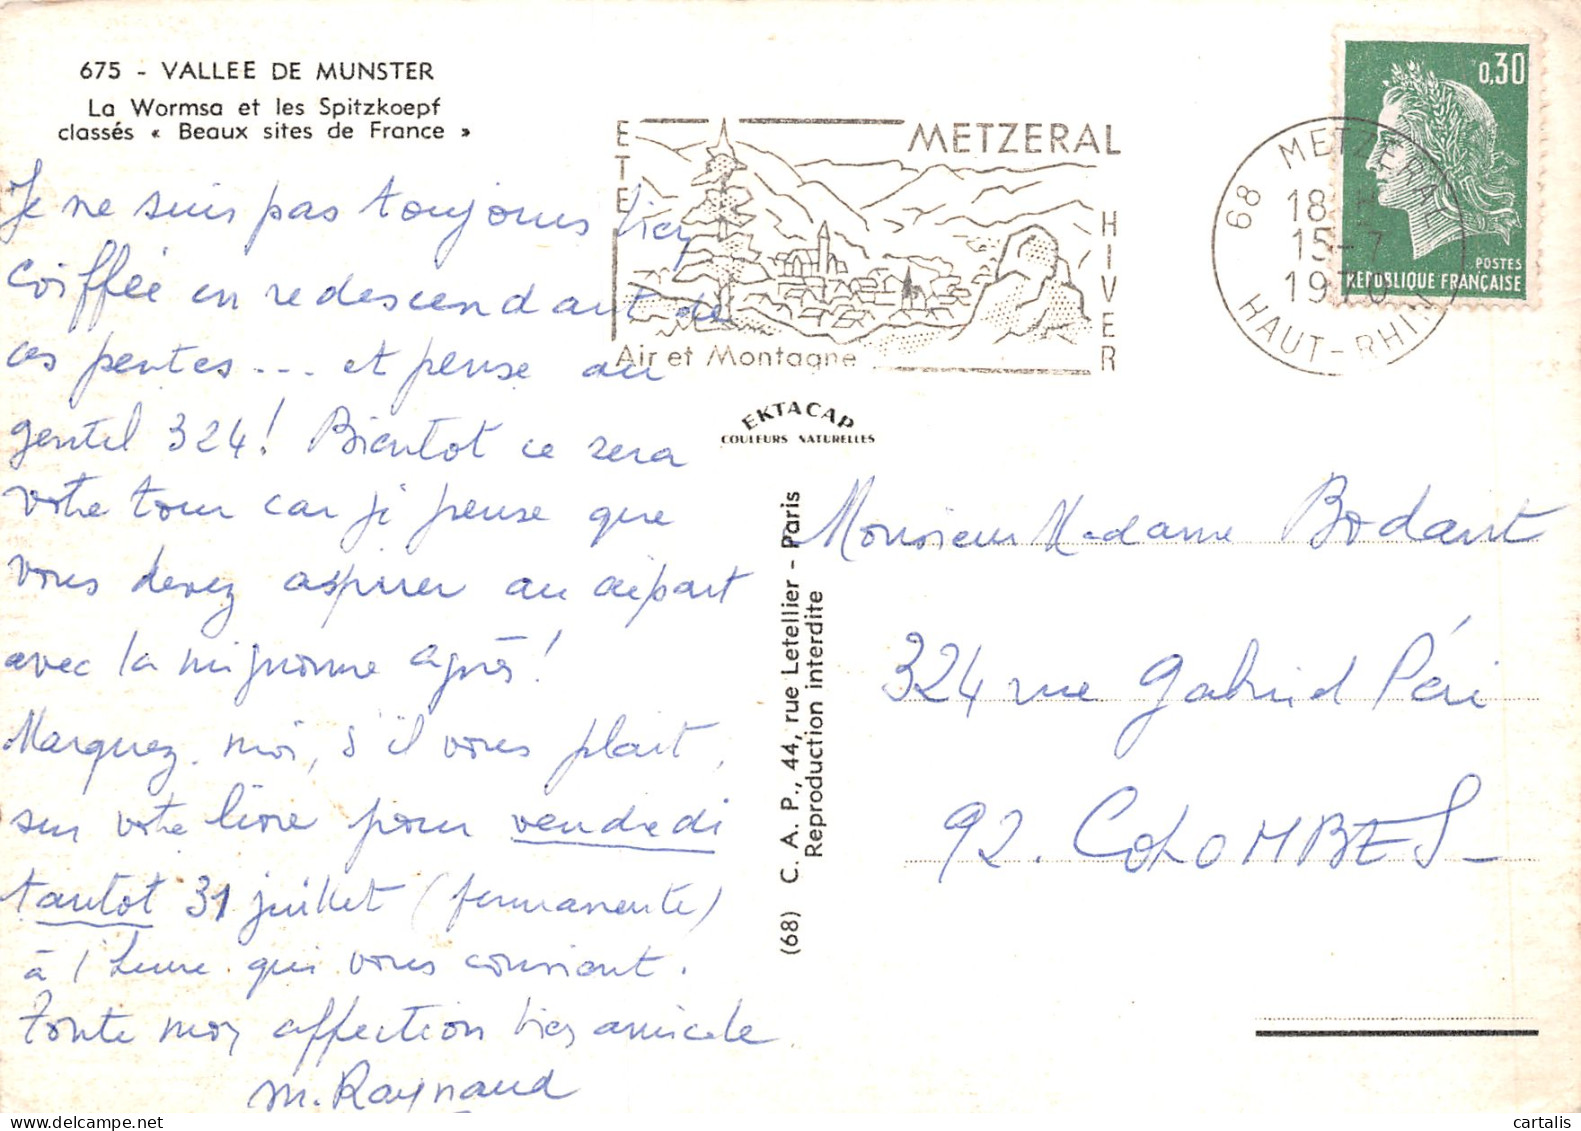 675 - VALLEE DE MUNSTER
La Wormsa et les Spitzkoepf
classés « Beaux sites de France »
Je ne suis pas toujours bien
coiffée en redescendant de
ces pentes... et pense au
gentil 324! Bientot ce sera
votre tour car je pense que
vous devez aspirer au départ
avec la mignonne agnès!
Marquez-moi, s'il vous plait,
sur votre livre pour vendredi
tantot 31 juillet (permanente)
à l'heure qui vous convient.
Toute mon affection bien amicale.
M. Raynaud
ETE
METZERAL
HIVER
Air et Montagne
68 METZERAL
18H
15-7
1970
HAUT-RHIN
0,30
POSTES
REPUBLIQUE FRANÇAISE
EKTACAP
COULEURS NATURELLES
(68) C. A. P., 44, rue Letellier - Paris
Reproduction interdite
Monsieur Madame Bodant
324 rue Gabriel Péri
92. COLOMBES-
cartalis